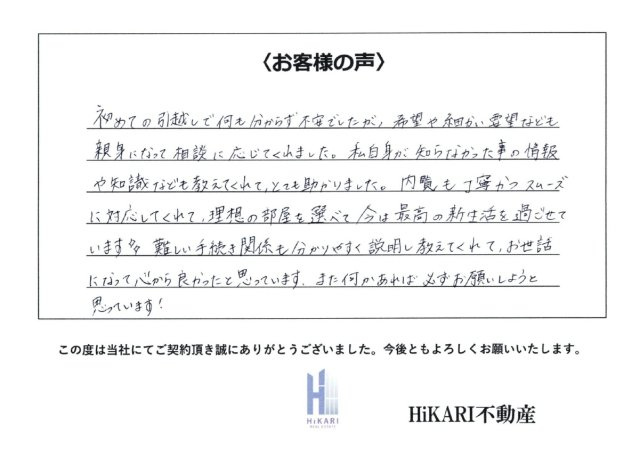 〈お客様の声〉
初めての引越しで何も分からず不安でしたが、希望や細かい要望なども
親身になって相談に応じてくれました。私自身が知らなかった事の情報
や知識なども教えてくれて、とても助かりました。内覧も丁寧かつスムーズ
に対応してくれて、理想の部屋を選べて今は最高の新生活を過ごせて
います♪♪ 難しい手続き関係も分かりやすく説明し教えてくれて、お世話
になって心から良かったと思っています。また何かあれば必ずお願いしようと
思っています!
この度は当社にてご契約頂き誠にありがとうございました。今後ともよろしくお願いいたします。
HiKARI
REAL ESTATE
HiKARI不動産